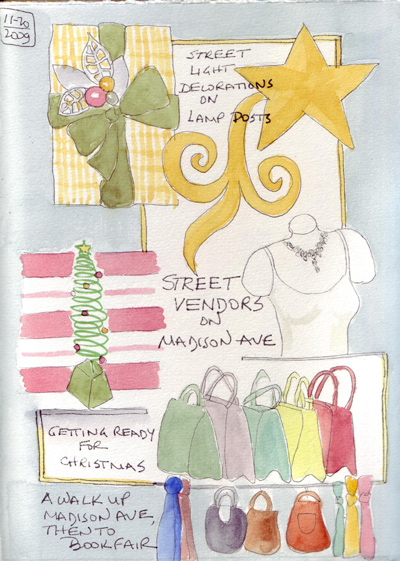 11-20
2009
STREET
LIGHT
DECORATIONS
ON
LAMP POSTS
STREET
VENDORS
ON
MADISON AVE
GETTING READY
FOR
CHRISTMAS
A WALK UP
MADISON AVE,
THEN TO
BOOKFAIR